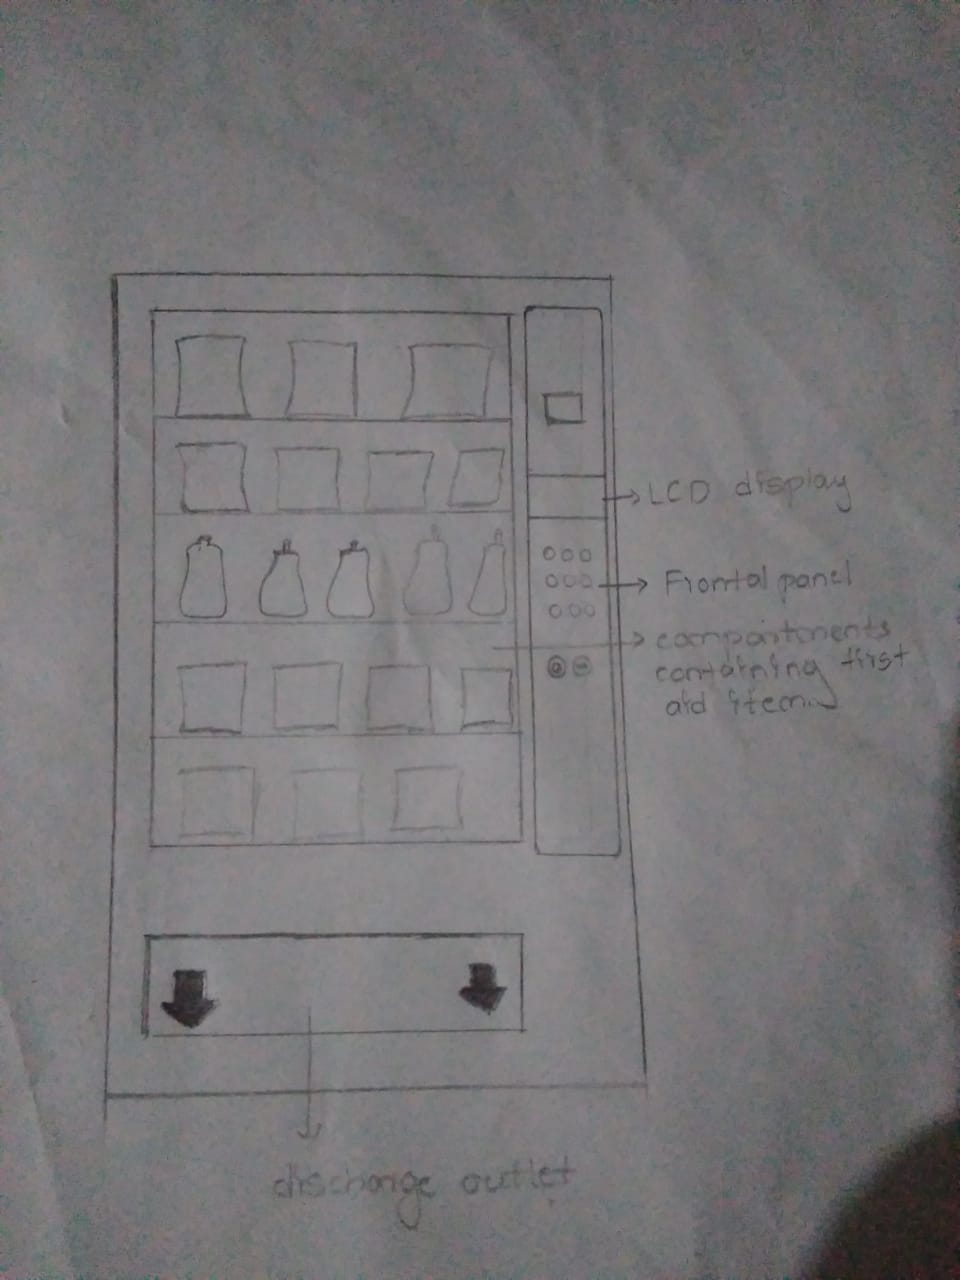 LCD display
Frontal panel
compartments
containing first
aid items
discharge outlet